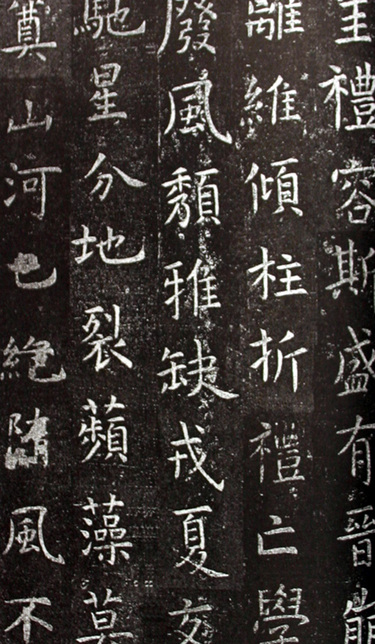 禮容斯盛有晉崩
離維傾柱折禮亡學
廢風頽雅缺戎夏交
馳星分地裂蘋藻莫
奠山河已絕隨風不